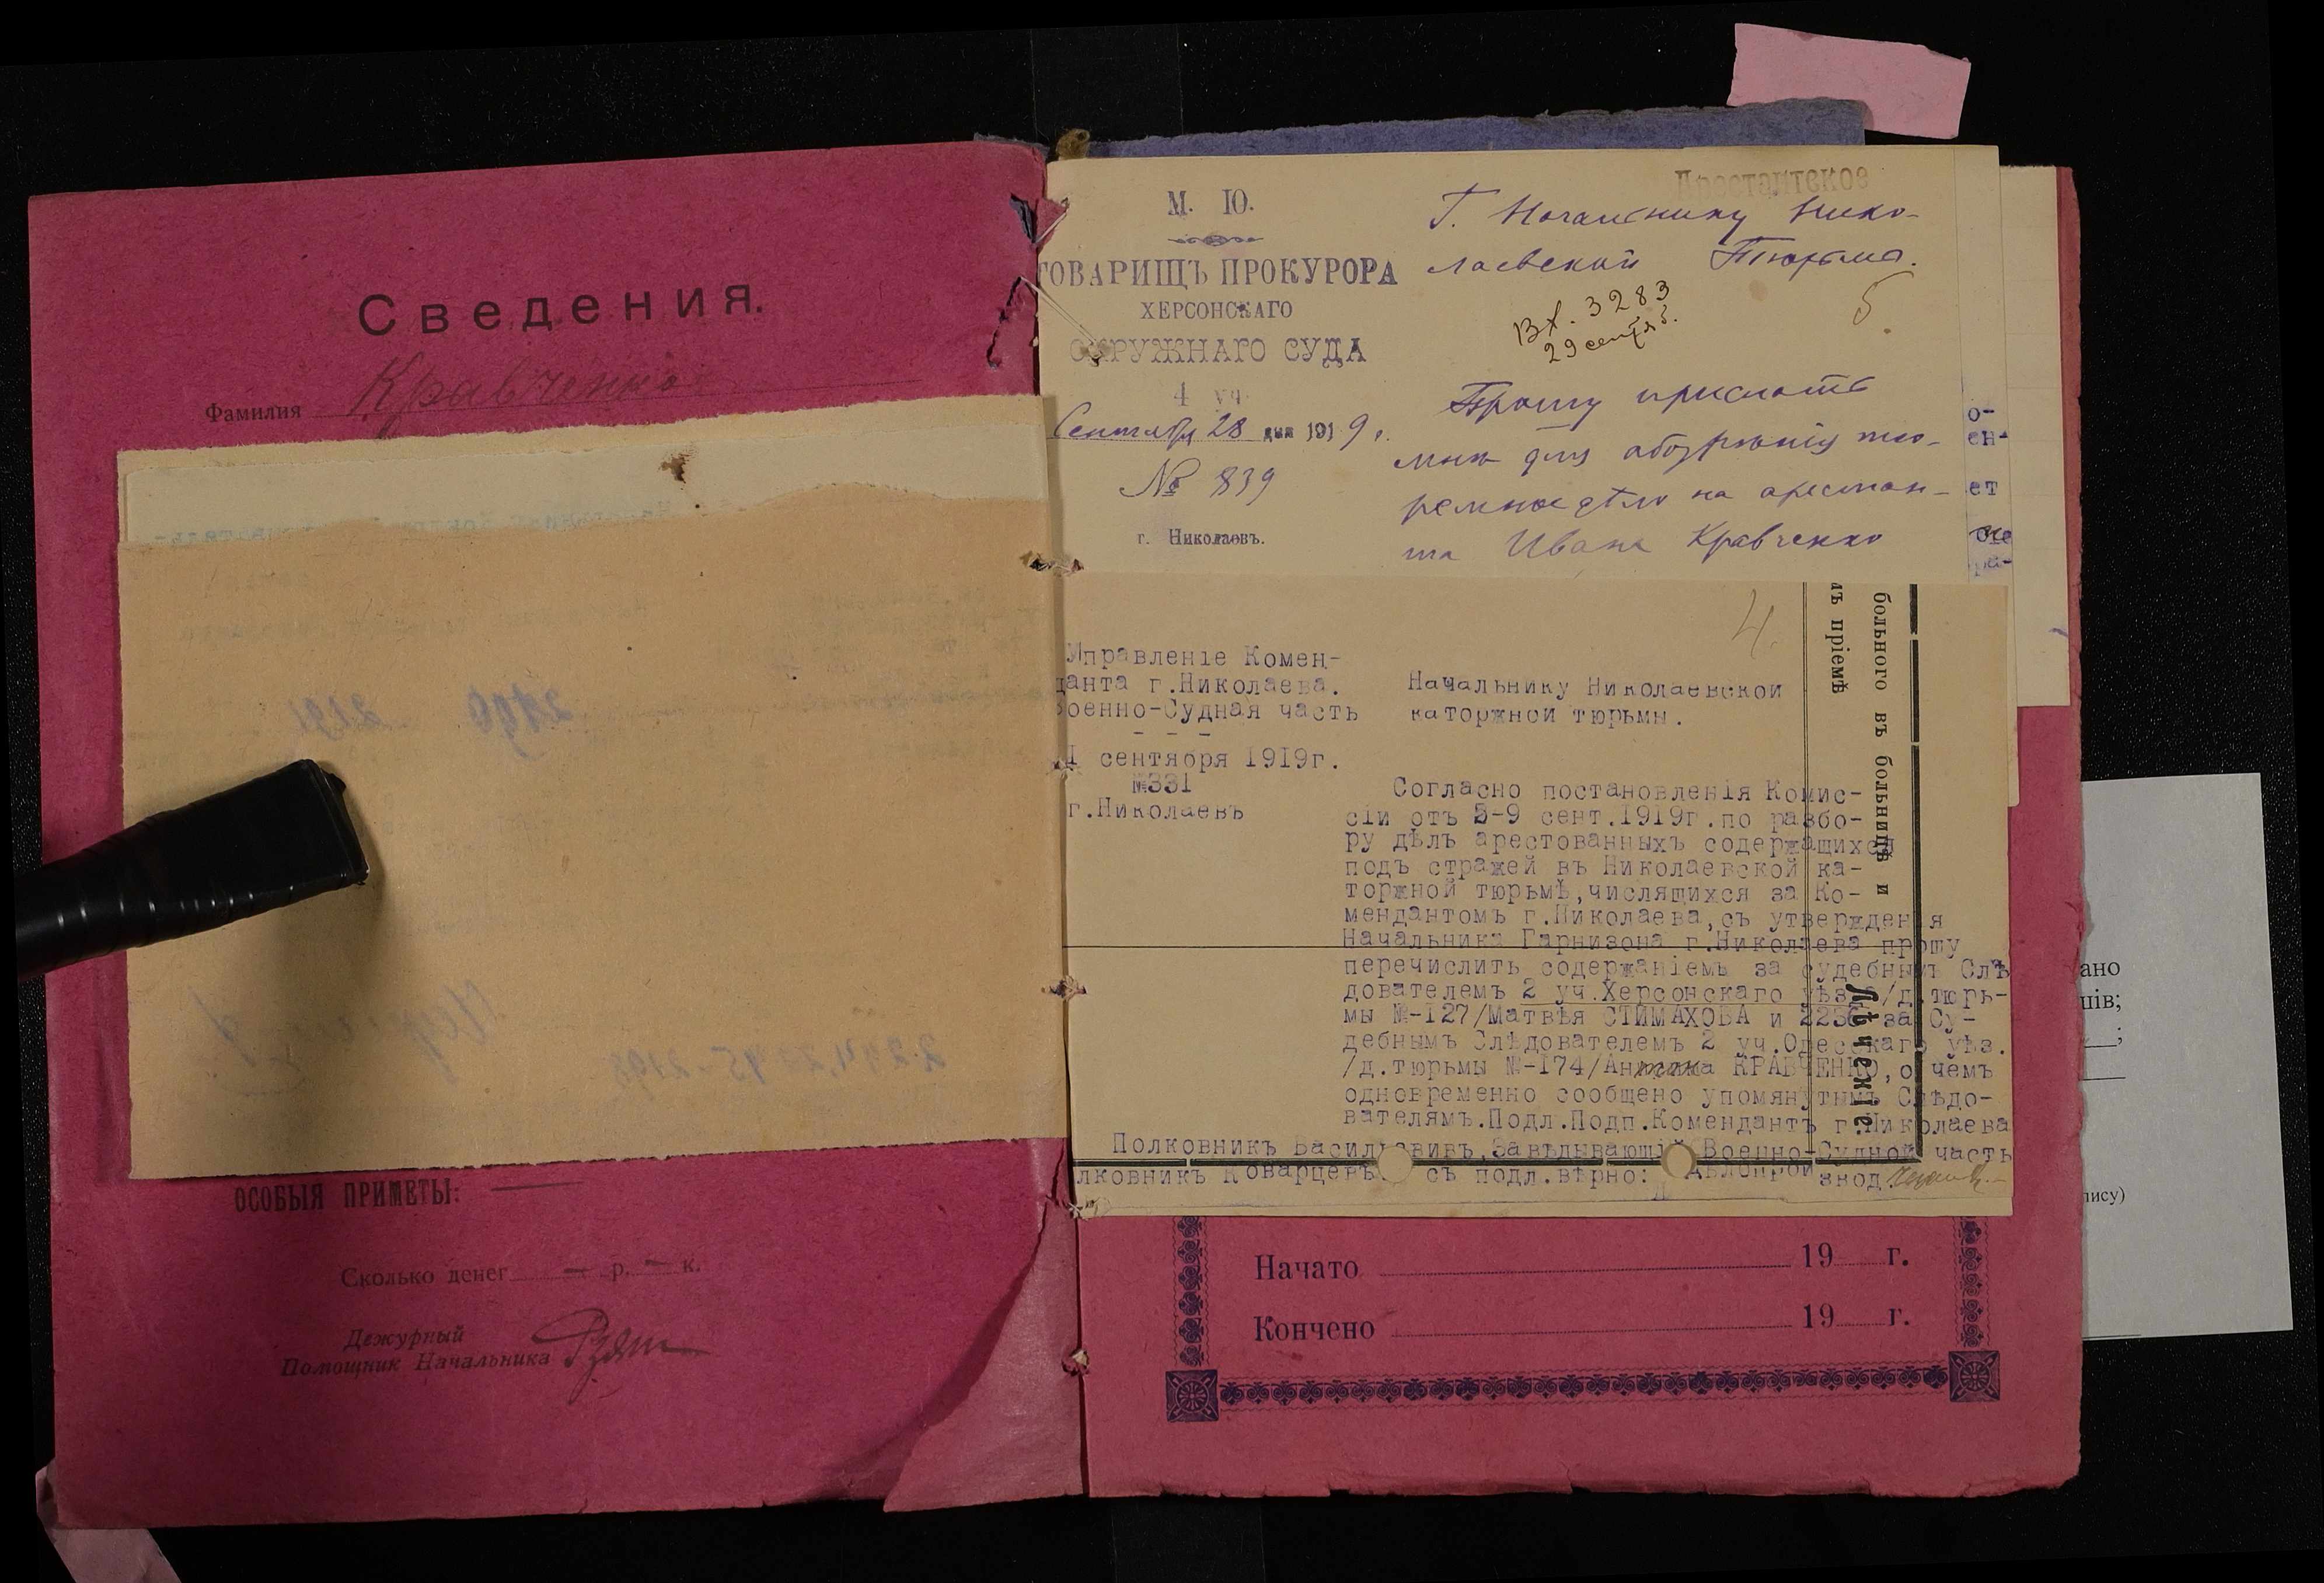 Сведения.
Фамилия Кравченко
ОСОБЫЯ ПРИМЕТЫ:
Сколько денег — р. — к.
Дежурный
Помощник Начальника
Арестантское
М. Ю.
ТОВАРИЩЪ ПРОКУРОРА
ХЕРСОНСКАГО
ОКРУЖНАГО СУДА
4 уч.
Сентября 28 дня 1919 г.
№ 839
г. Николаевъ.
Г. Начальнику Нико-
лаевской Тюрьмы.
Вх. 3283
29 сентяб.
5.
Прошу прислать
мнѣ для обозрѣнія тю-
ремное дѣло на арестан-
та Ивана Кравченко
о-
ен-
ет
4.
Управленіе Комен-
данта г.Николаева.
Военно-Судная часть
- - -
1 сентября 1919г.
№331
г.Николаевъ
Начальнику Николаевской
каторжной тюрьмы.
Согласно постановленія Комис-
сіи отъ 3-9 сент.1919г.по разбо-
ру дѣлъ арестованныхъ содержащихся
подъ стражей въ Николаевской ка-
торжной тюрьмѣ,числящихся за Ко-
мендантомъ г.Николаева,съ утвержденія
Начальника Гарнизона г.Николаева прошу
перечислить содержаніемъ за судебнымъ Слѣ
дователемъ 2 уч.Херсонскаго уѣзда/д.тюрь-
мы №-127/Матвѣя СТИМАХОВА и 2236 за Су-
дебнымъ Слѣдователемъ 2 уч.Одесскаго уѣз.
/д.тюрьмы №-174/ КРАВЧЕНКО,о чемъ
одновременно сообщено упомянутымъ Слѣдо-
вателямъ.Подл.Подп.Комендантъ г.Николаева
Полковникъ Завѣдывающій Военно-Судной часть
лковникъ Коварцевъ. съ подл.вѣрно: Дѣлопрои
звод
больного въ больницѣ и
мъ пріемѣ
Лѣченіе
Начато 19 г.
Кончено 19 г.
ано
пів;
;
пису)